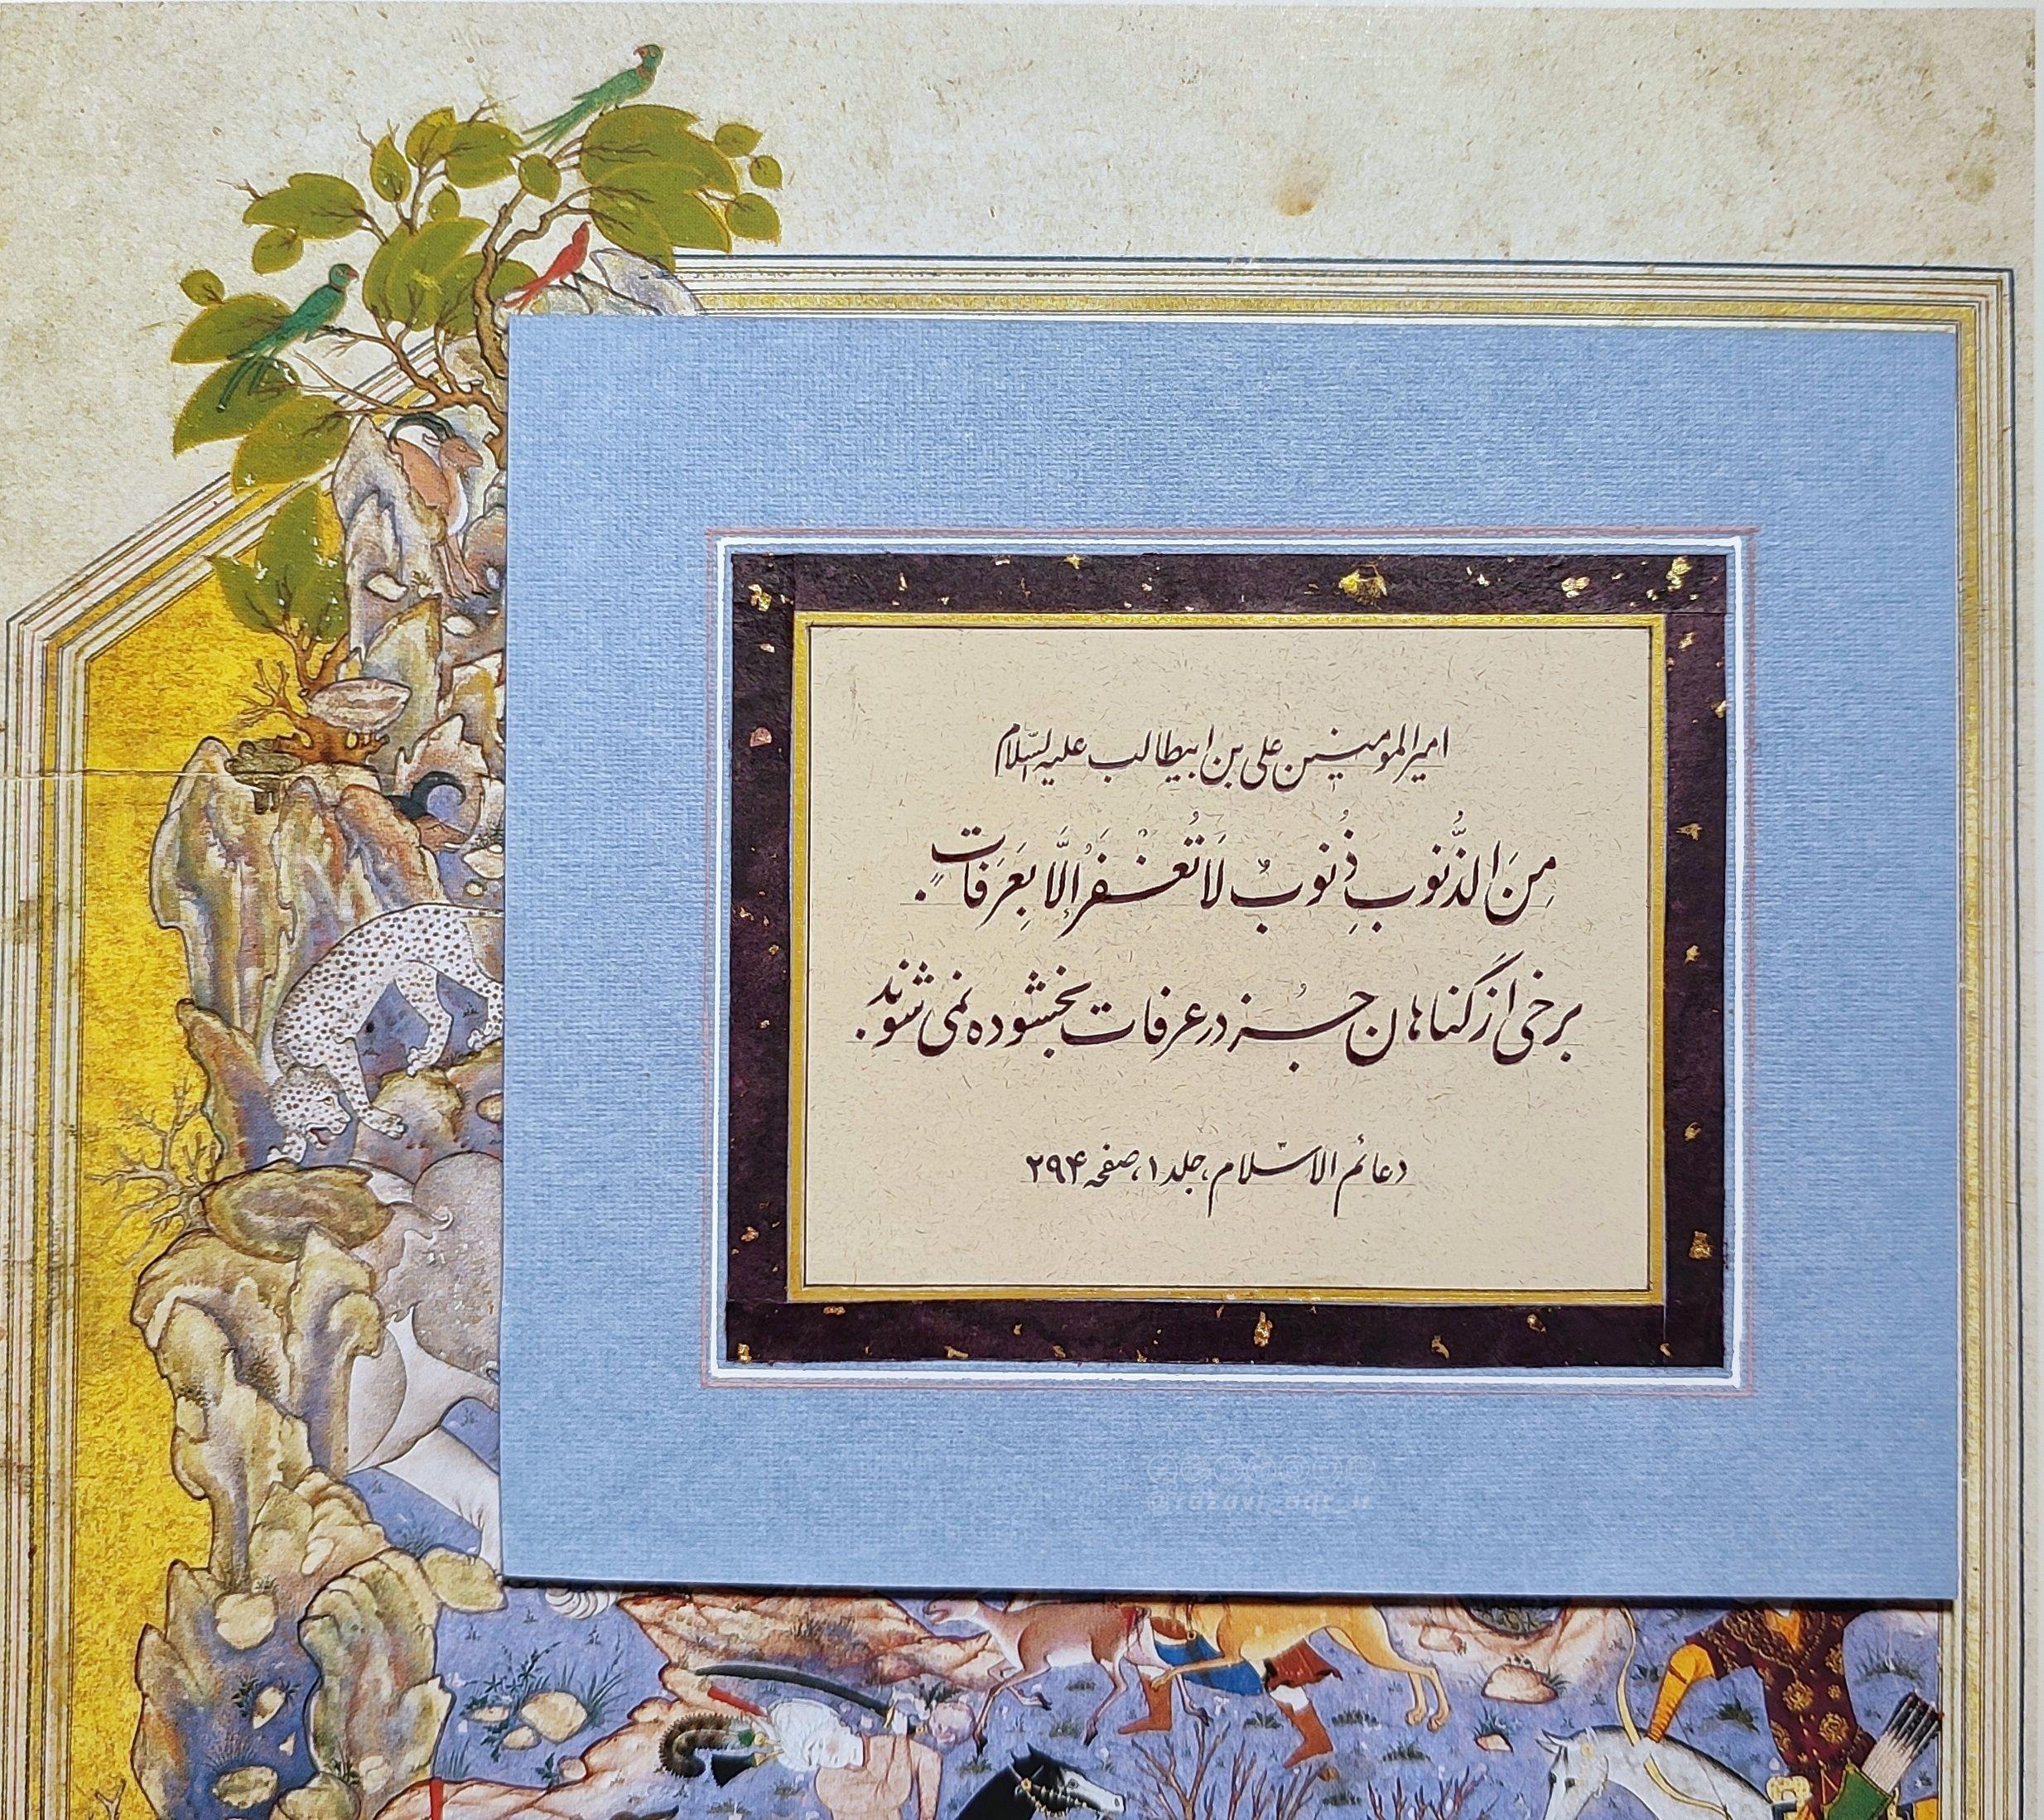 امیرالمومنین علی بن ابیطالب علیه السّلام
مِنَ الذُّنوبِ ذُنوبٌ لَا تُغْفَرُ إلَّا بِعَرَفَاتٍ.
برخی از گناهان جُز در عرفات بخشوده نمی شوند.
دعائم الاسّلام، جلد ۱، صفحه ۲۹۴
@razavi_aqr_ir